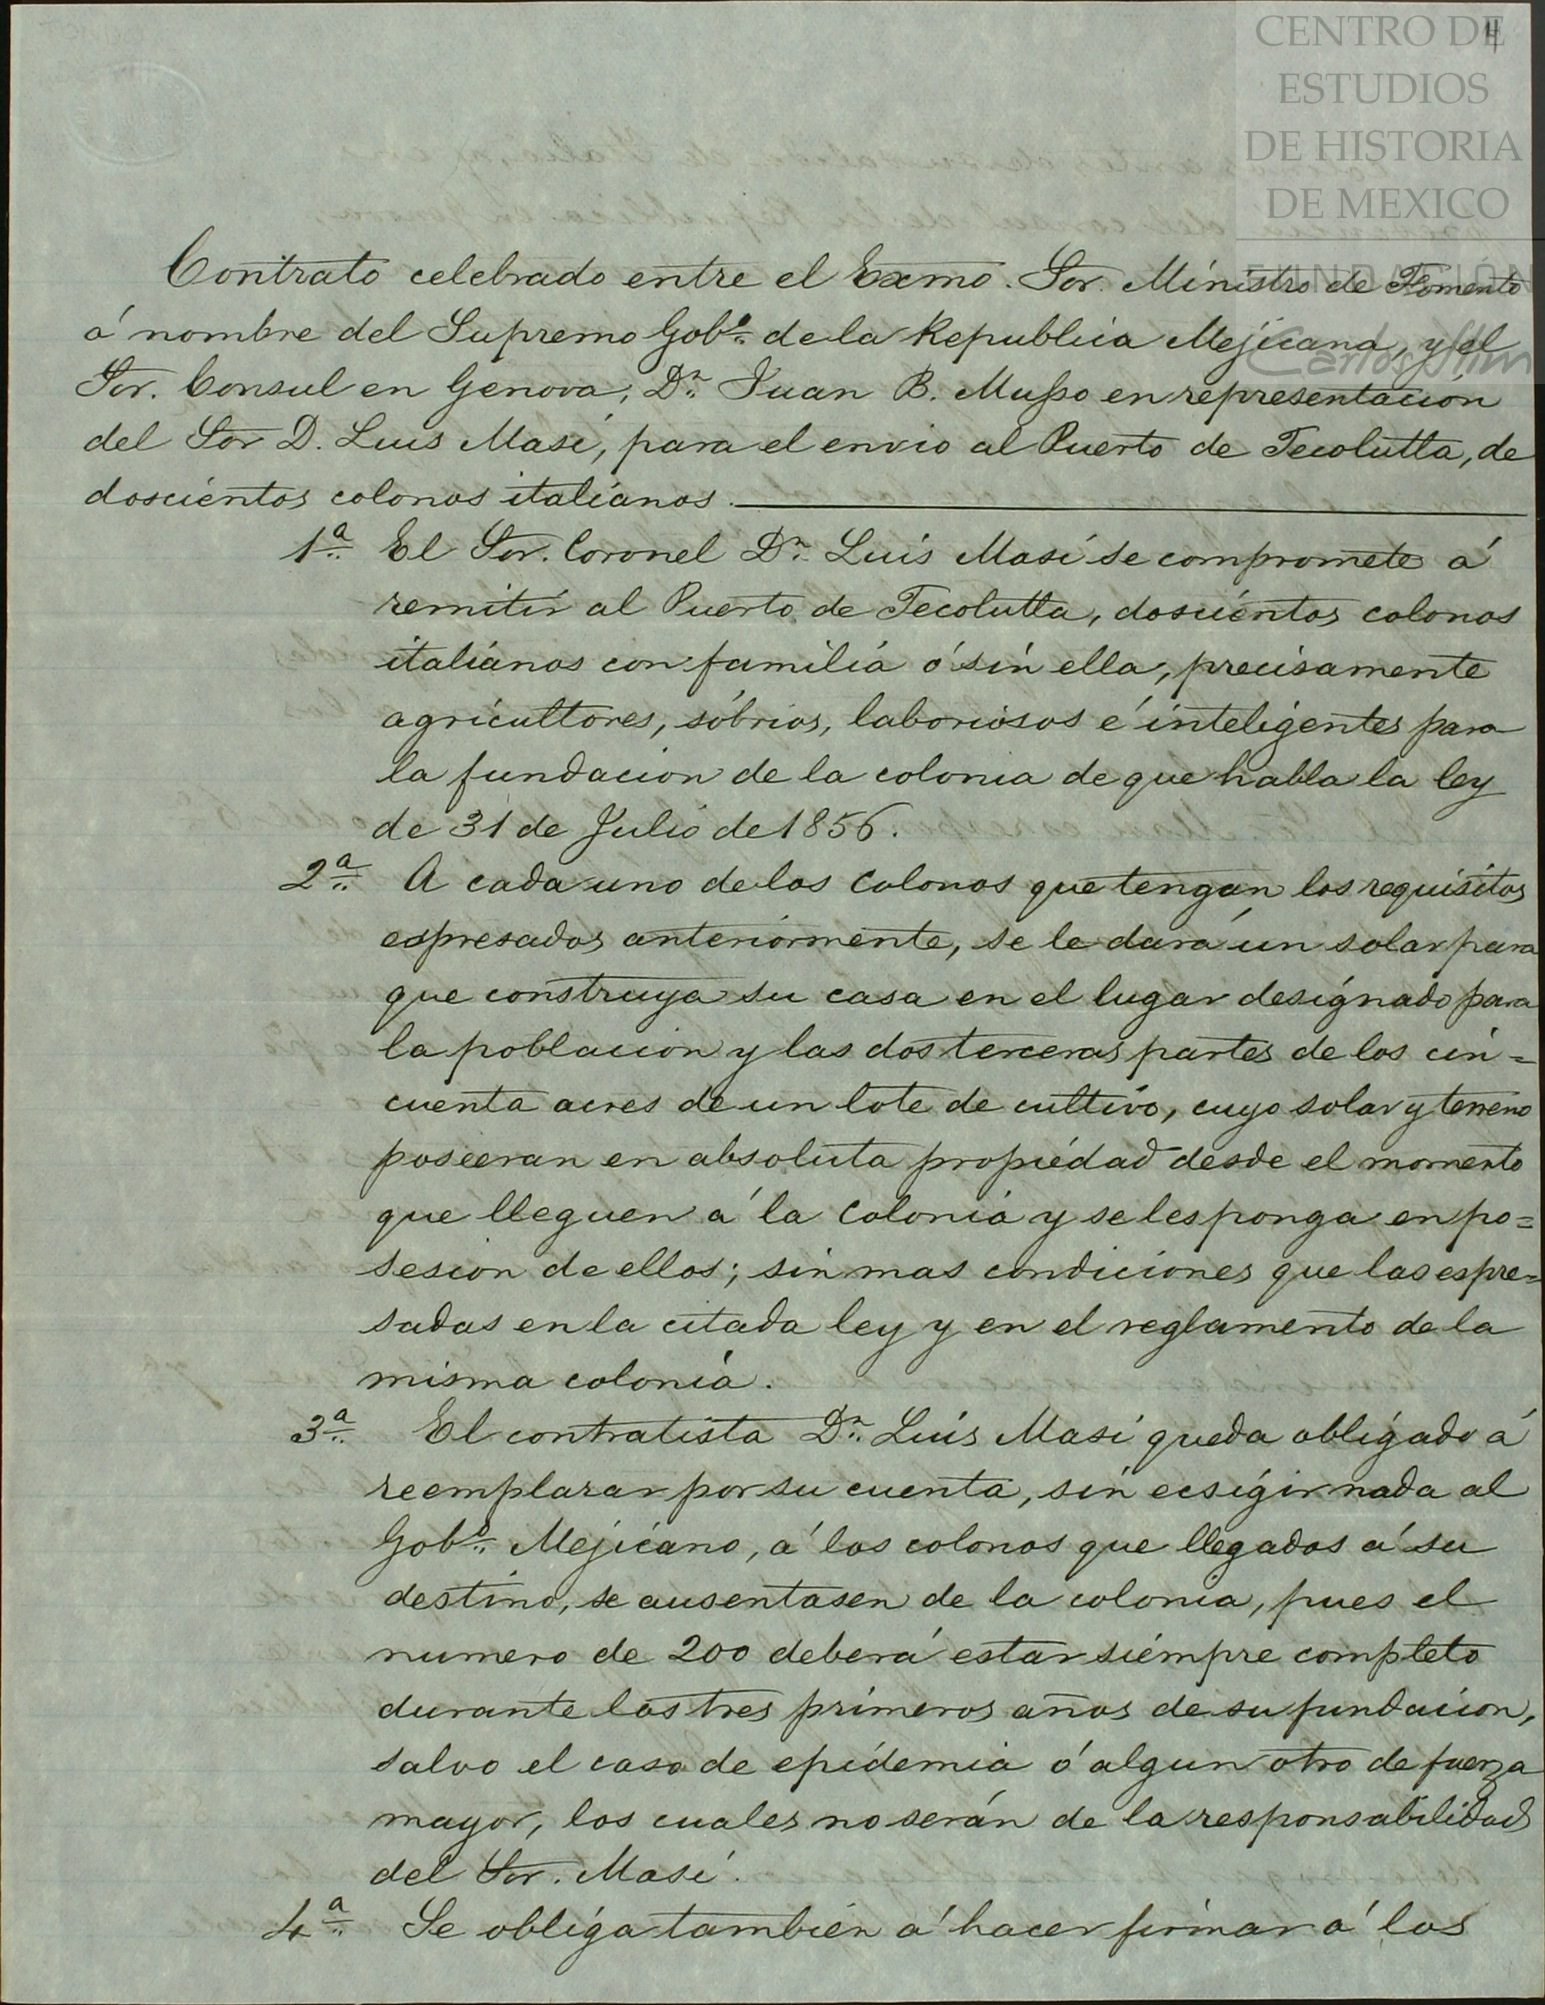 CENTRO DE
ESTUDIOS
DE HISTORIA
DE MEXICO
FUNDACIÓN
Carlos Slim
Contrato celebrado entre el Exmo. Sor. Ministro de Fomento
á nombre del Supremo Gobº. de la Republica Mejicana, y el
Sor. Consul en Genova, Dn. Juan B. Musso en representación
del Sor D. Luis Masi, para el envio al Puerto de Tecolutla, de
doscientos colonos italianos.
1ª. El Sor. Coronel Dn. Luis Masi se compromete á
remitir al Puerto de Tecolutla, doscientos colonos
italianos con familia ó sin ella, precisamente
agricultores, sóbrios, laboriosos é inteligentes para
la fundacion de la colonia de que habla la ley
de 31 de Julio de 1856.
2ª. A cada uno de los colonos que tengan los requisitos
espresados anteriormente, se le dará un solar para
que construya su casa en el lugar designado para
la poblacion y las dos terceras partes de los cin=
cuenta acres de un lote de cultivo, cuyo solar y terreno
poseeran en absoluta propiedad desde el momento
que lleguen á la Colonia y se les ponga en po=
sesion de ellos; sin mas condiciones que las espre=
sadas en la citada ley y en el reglamento de la
misma colonia.
3ª. El contratista Dn. Luis Masi queda obligado á
reemplazar por su cuenta, sin ecsigir nada al
Gobº. Mejicano, á los colonos que llegados á su
destino, se ausentasen de la colonia, pues el
numero de 200 deberá estar siempre completo
durante los tres primeros años de su fundacion,
salvo el caso de epidemia ó algun otro de fuerza
mayor, los cuales no serán de la responsabilidad
del Sor. Masi.
4ª. Se obliga tambien á hacer firmar á los